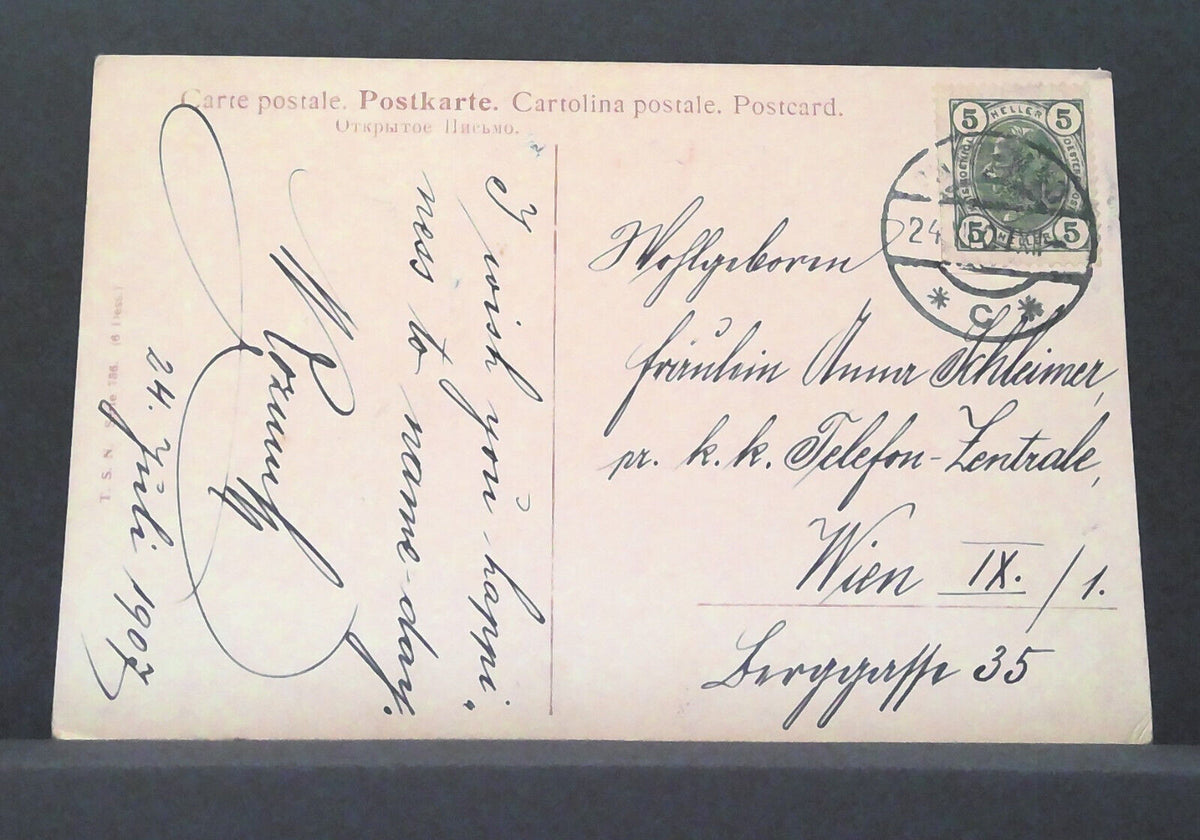 Carte postale. Postkarte. Cartolina postale. Postcard.
Открытое Письмо.
I wish you happi„
ness to name-day.
24. Juli 1907
T. S. N. Serie 186. (6 Dess.)
5 HELLER 5
5 HELLER 5
24
* C *
Wohlgeboren
Fräulein Anna Schleimer,
pr. k. k. Telefon-Zentrale,
Wien IX. / 1.
Berggasse 35